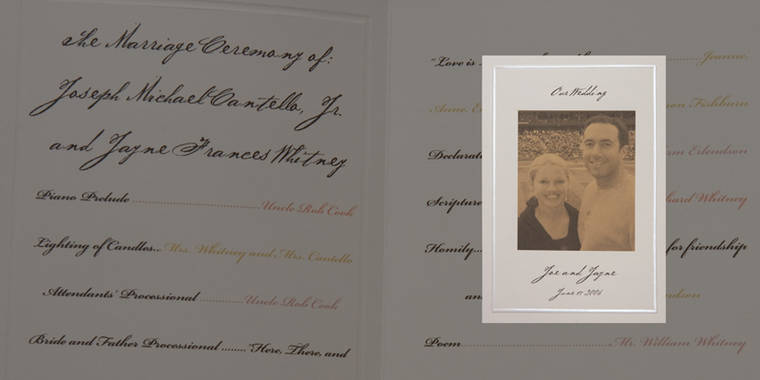 The Marriage Ceremony of:
Joseph Michael Cantello, Jr.
and Jayne Frances Whitney
Piano Prelude Uncle Rob Cook
Lighting of Candles... Mrs. Whitney and Mrs. Cantello
Attendants' Processional Uncle Rob Cook
Bride and Father Processional ........ "Here, There, and
"Love is Joanne,
Anne Fishburn
Declarat Erlendson
Scripture Whitney
Homily... for friendship
and
Poem Mr. William Whitney
Our Wedding
Joe and Jayne
June 17 2006